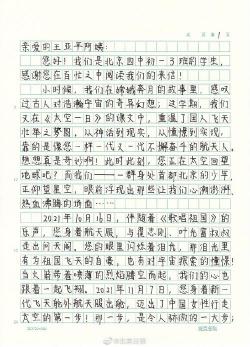 亲爱的王亚平阿姨:
您好!我们是北京四中初一3班的学生,
感谢您在百忙之中阅读我们的来信!
小时候,我们在嫦娥奔月的故事里,感叹
过古人对浩瀚宇宙的奇异幻想;这学期,我们
又在《太空一日》的课文中,重温了国人飞天
壮举之梦圆。从神话到现实,从憧憬到实现,
靠的是像您一样一代又一代不懈奋斗的航天人。
想想真是奇妙啊!此时此刻,您正在太空回望
地球吧?而我们——一群身处首都北京的少年,
正仰望星空,眼前浮现出那些让我们心潮澎湃、
热血沸腾的场面……
2021年10月16日,伴随着《歌唱祖国》的
乐声,您身着航天服,与翟志刚、叶光富叔叔
走出问天阁,您的眼里闪烁着泪光,那泪光里
有为祖国飞天的自豪,也有对宇宙探索的憧憬。
当火箭带着喷薄的烈焰腾空而起,我们的心也
跟着一起飞翔。2021年11月7日,您身着新一
代飞天舱外航天服出舱,迈出了中国女性舱外
太空的第一步!那一步,是令人骄傲的一大步;